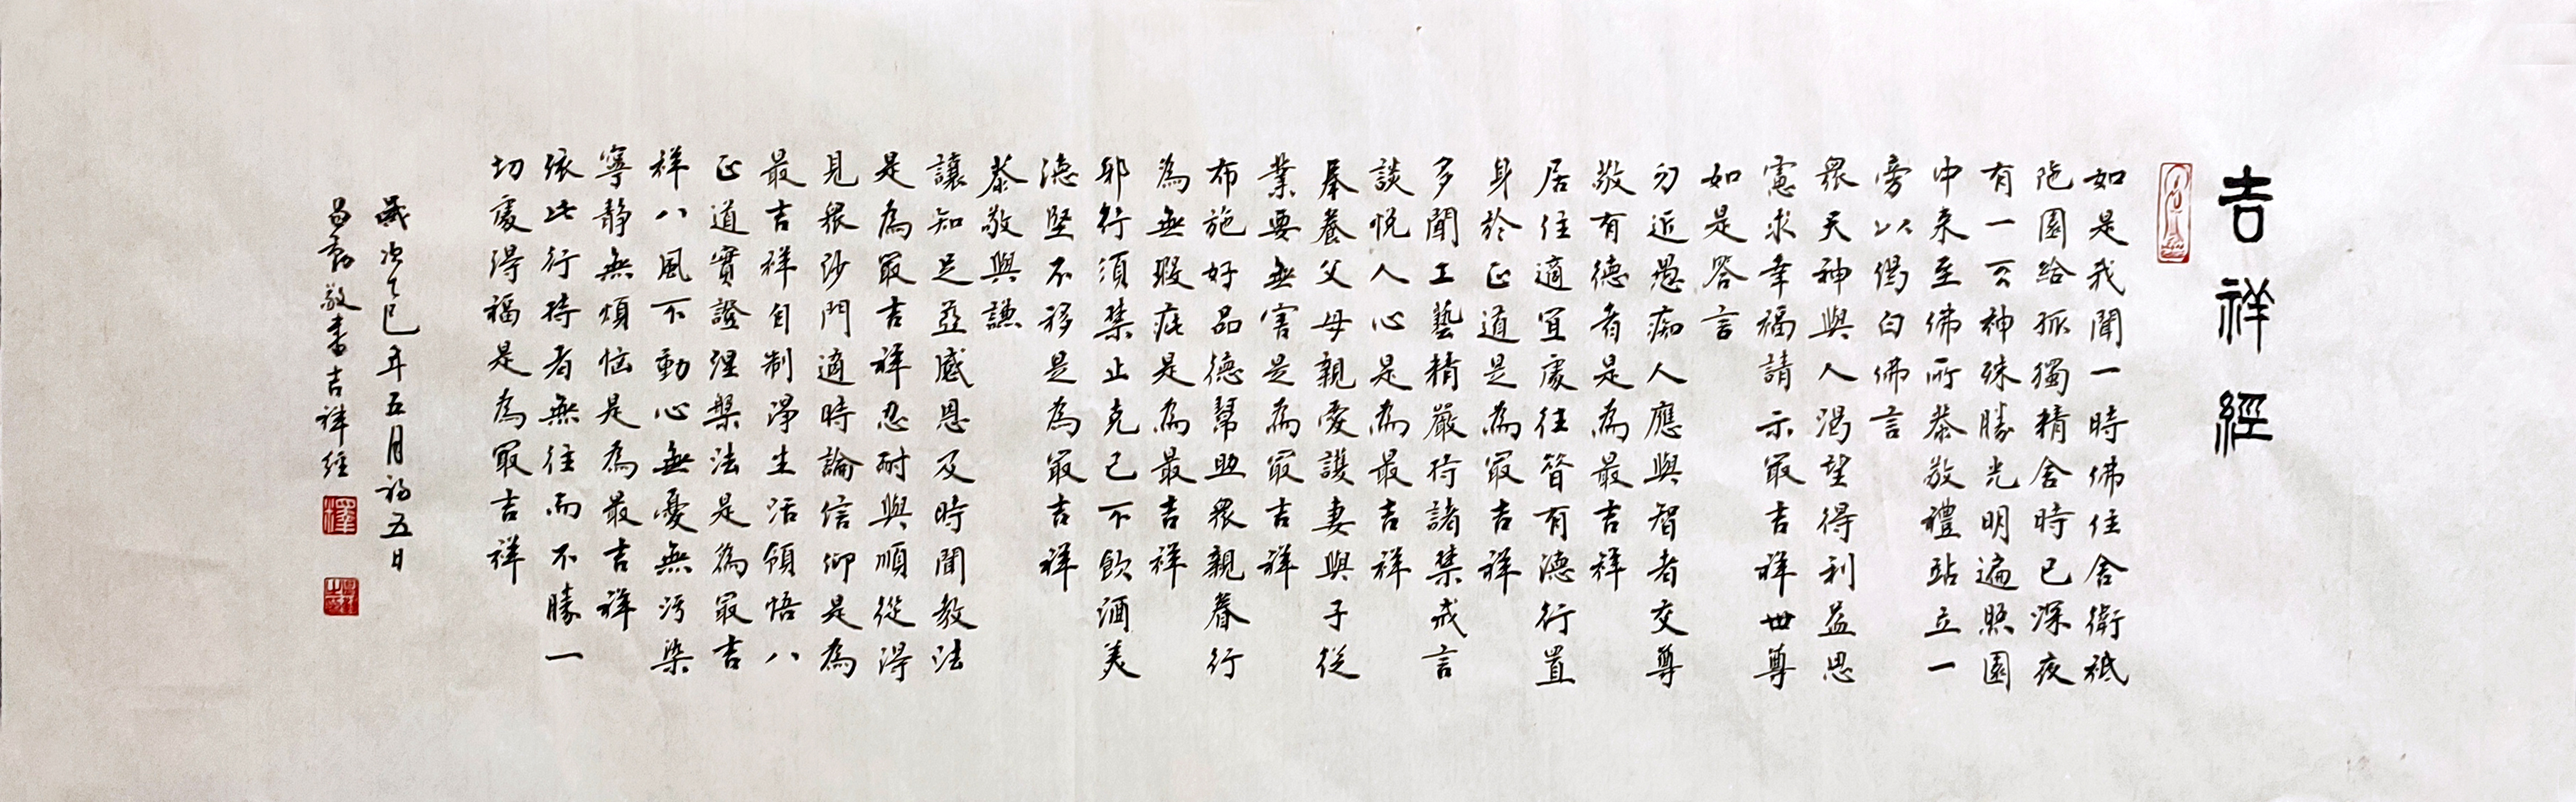 吉祥經
如是我聞一時佛住舍衛祇
陀園給孤獨精舍時已深夜
有一天神殊勝光明遍照園
中来至佛所恭敬禮站立一
旁以偈白佛言
眾天神與人渴望得利益思
慮求幸福請示最吉祥世尊
如是答言
勿近愚痴人應與智者交尊
敬有德者是為最吉祥
居住適宜處往昔有德行置
身於正道是為最吉祥
多聞工藝精嚴持諸禁戒言
談悅人心是為最吉祥
奉養父母親愛護妻與子從
業要無害是為最吉祥
布施好品德幫助眾親眷行
為無瑕疵是為最吉祥
邪行須禁止克己不飲酒美
德堅不移是為最吉祥
恭敬與謙
讓知足並感恩及時聞教法
是為最吉祥忍耐與順從得
見眾沙門適時論信仰是為
最吉祥自制淨生活領悟八
正道實證涅槃法是為最吉
祥八風不動心無憂無污染
寧靜無煩惱是為最吉祥
依此行持者無往而不勝一
切處得福是為最吉祥
歲次乙巳年五月初五日
昌勤敬書吉祥經